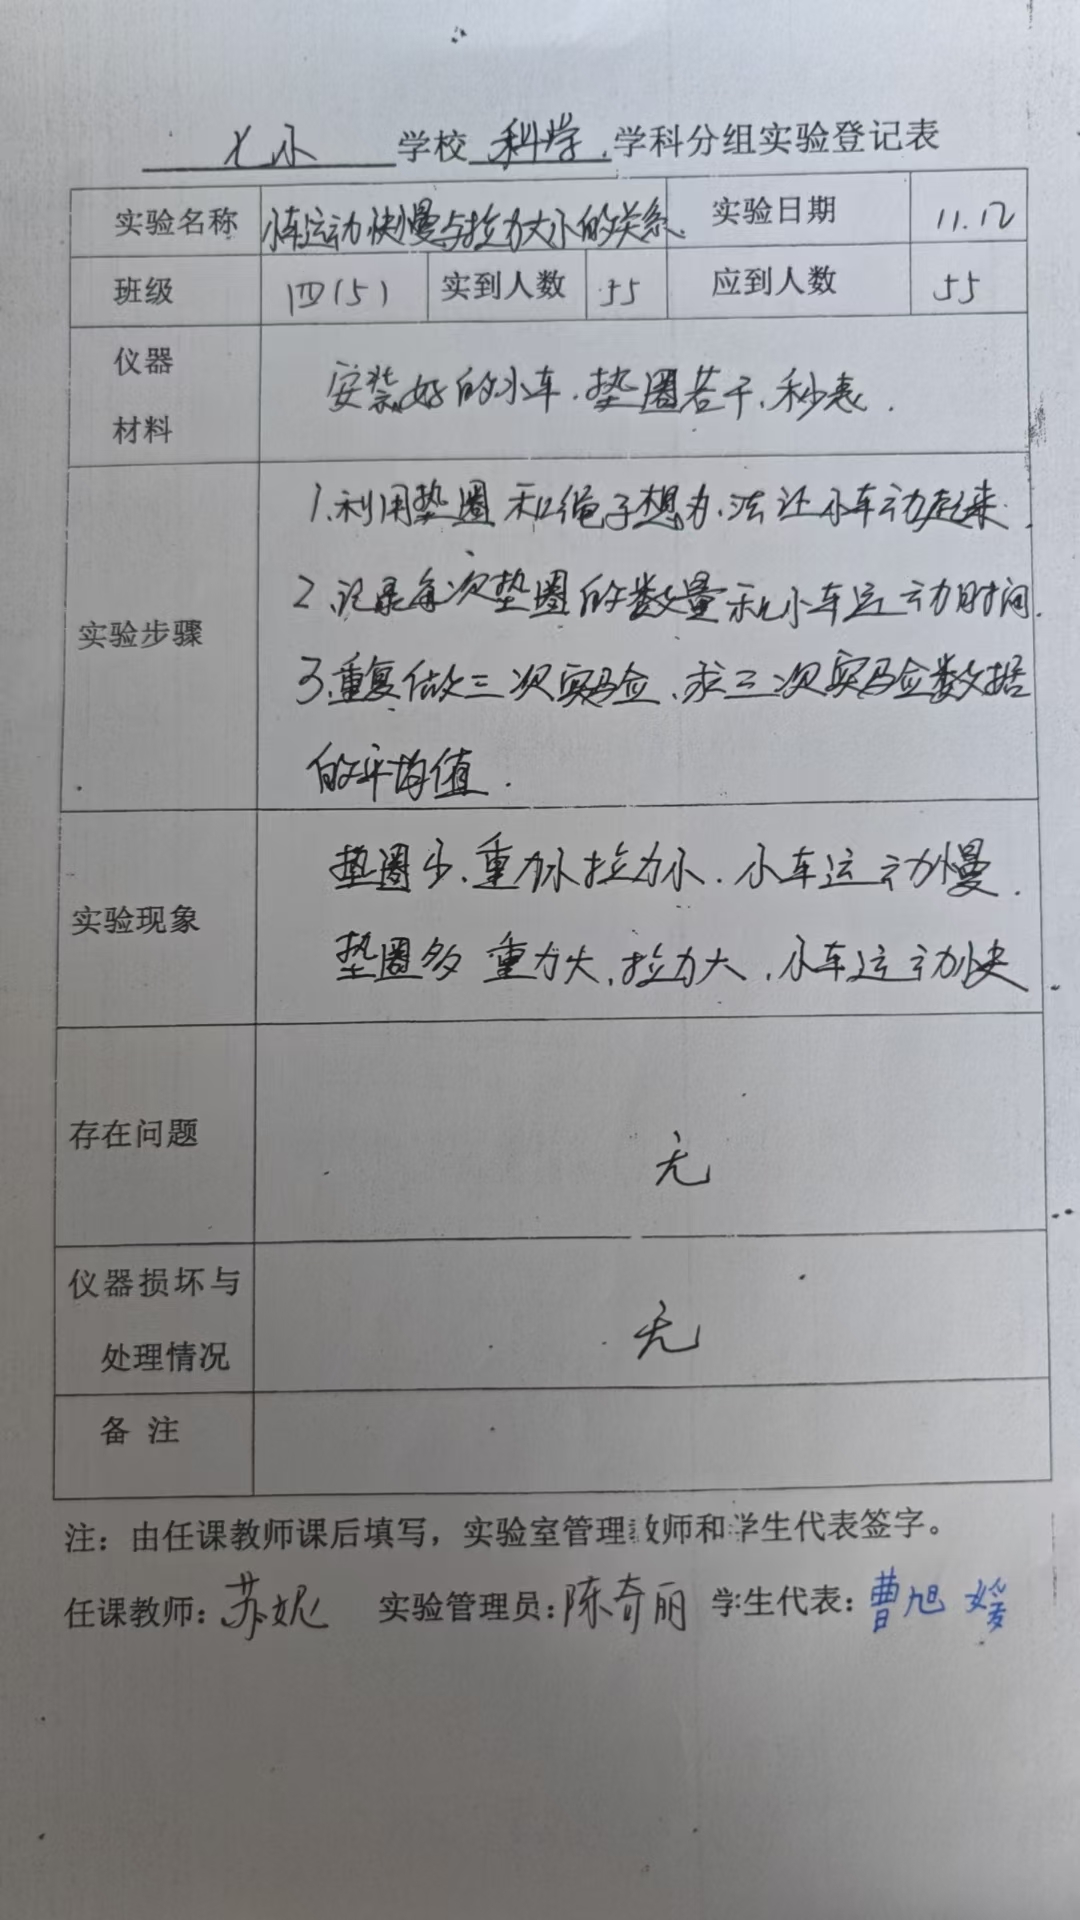 七小学校科学学科分组实验登记表
实验名称 小车运动快慢与拉力大小的关系 实验日期 11.12
班级 四(5) 实到人数 55 应到人数 55
仪器
材料
安装好的小车、垫圈若干、秒表.
实验步骤
1、利用垫圈和绳子想办法让小车动起来.
2、记录每次垫圈的数量和小车运动时间.
3、重复做三次实验、求三次实验数据
的平均值.
实验现象
垫圈少、重力小拉力小、小车运动慢.
垫圈多 重力大、拉力大、小车运动快
存在问题
无
仪器损坏与
处理情况
无
备 注
注：由任课教师课后填写，实验室管理教师和学生代表签字。
任课教师：苏妮 实验管理员：陈奇丽 学生代表：曹旭媛